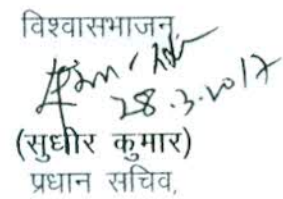 विश्वासभाजन,
28.3.2017
(सुधीर कुमार)
प्रधान सचिव,